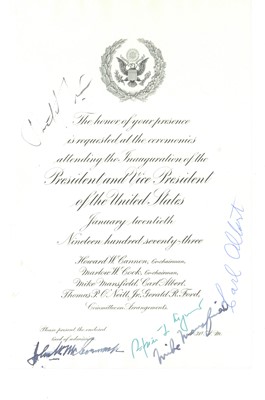 The honor of your presence
is requested at the ceremonies
attending the Inauguration of the
President and Vice President
of the United States
January twentieth
Nineteen hundred seventy-three
Howard W. Cannon, Cochairman,
Marlow W. Cook, Cochairman,
Mike Mansfield, Carl Albert,
Thomas P. O'Neill, Jr., Gerald R. Ford,
Committee on Arrangements.
Please present the enclosed
Carl Albert
John W. McCormack
Mike Mansfield